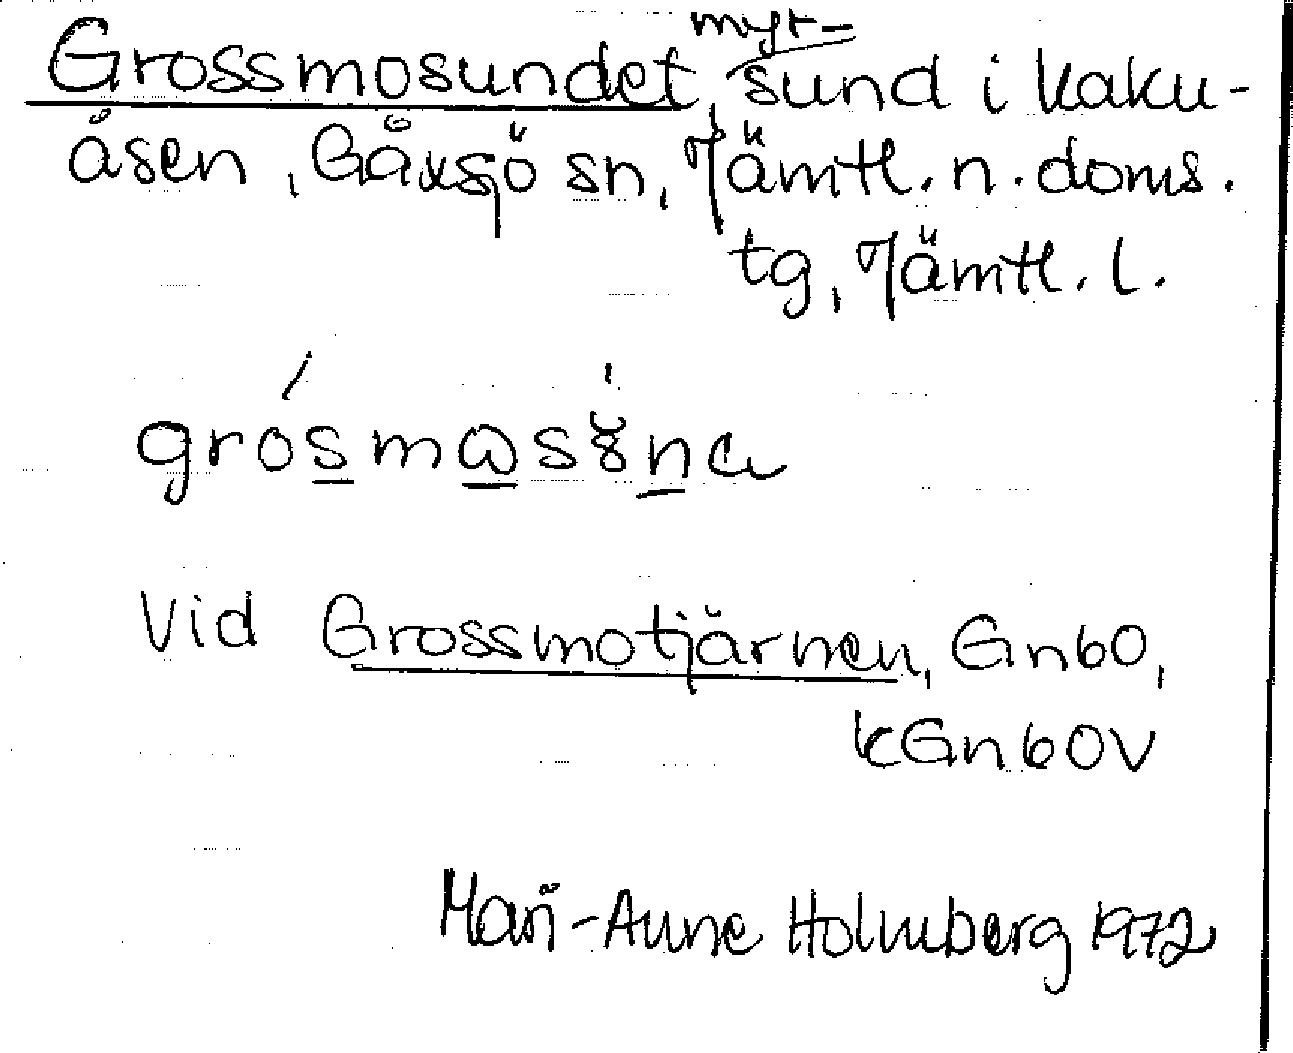 myr-
Grossmosundet, sund i Kaku-
åsen, Gåxsjö sn, Jämtl. n. doms.
tg, Jämtl. l.
Vid Grossmotjärnen, Gn60,
kGn60V
Mari-Anne Holmberg 1972